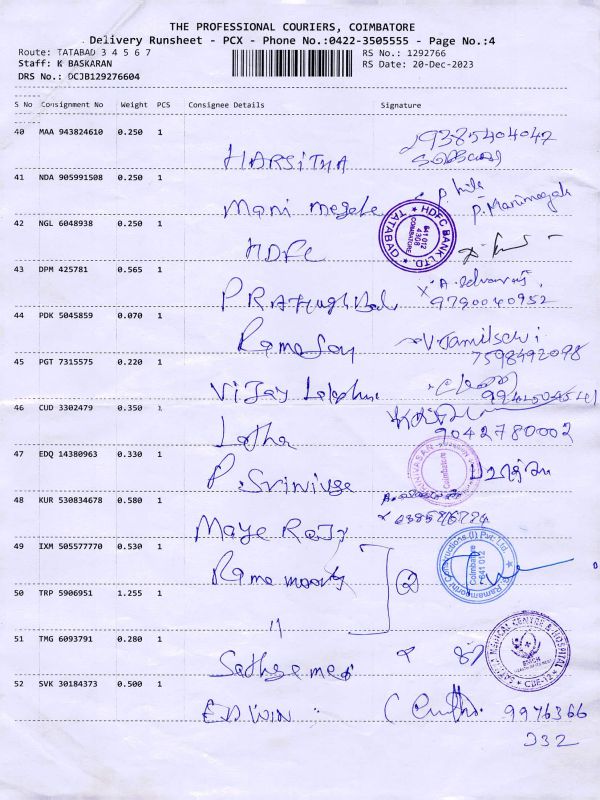 THE PROFESSIONAL COURIERS, COIMBATORE
Delivery Runsheet - PCX - Phone No.:0422-3505555 - Page No.:4
Route: TATABAD 3 4 5 6 7
Staff: K BASKARAN
DRS No.: OCJB129276604
RS No.: 1292766
RS Date: 20-Dec-2023
S No Consignment No Weight PCS Consignee Details Signature
40 MAA 943824610 0.250 1
HARSITHA 9385404047
41 NDA 905991508 0.250 1
Mani megale P. Manimegali
42 NGL 6048938 0.250 1
HDFC
HDFC BANK LTD. TATABAD 641 012 4308 COIMBATORE
43 DPM 425781 0.565 1
9790040952
44 PDK 5045859 0.070 1
V Tamilselvi
7598492098
45 PGT 7315575 0.220 1
Vijay
46 CUD 3302479 0.350 1
Latha 9042780002
47 EDQ 14380963 0.330 1
P. Srinivasa
Coimbatore
48 KUR 530834678 0.580 1
49 IXM 505577770 0.530 1
Rama moorthy 2
Ramamoorthi Constructions (I) Pvt. Ltd. Coimbatore 641 012
50 TRP 5906951 1.255 1
"
51 TMG 6093791 0.280 1
MEDICAL CENTRE & HOSPITAL CBE-12
52 SVK 30184373 0.500 1
EDWIN 9976366
232